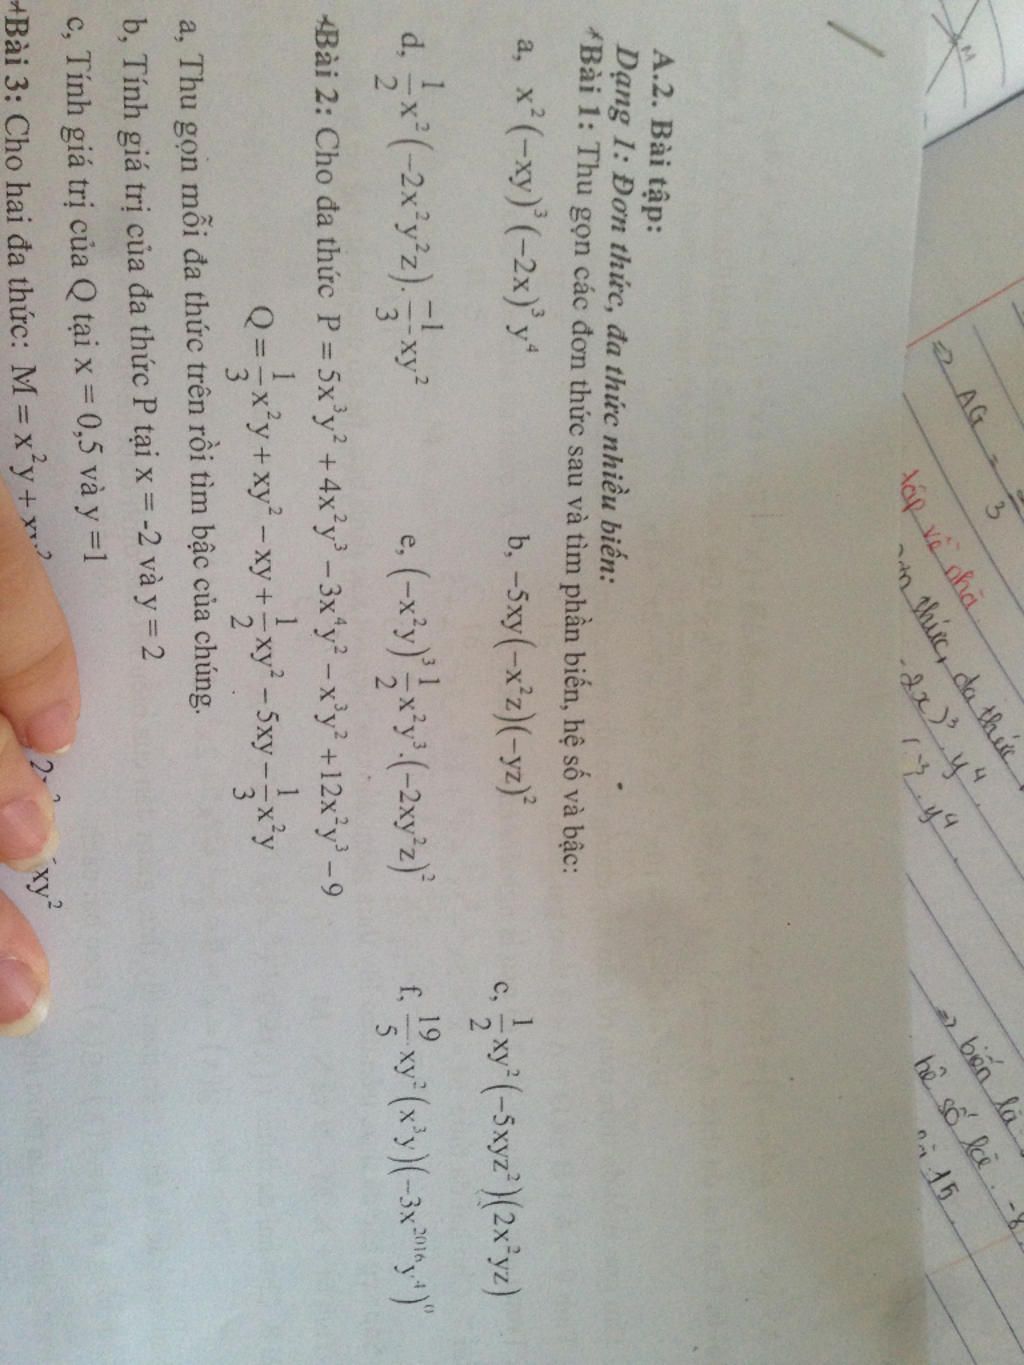 A.2. Bài tập:
Dạng 1: Đơn thức, đa thức nhiều biến:
*Bài 1: Thu gọn các đơn thức sau và tìm phần biến, hệ số và bậc:
a, x²(−xy)³(−2x)³y⁴ b, −5xy(−x²z)(−yz)² c, 1/2 xy²(−5xyz²)(2x²yz)
d, 1/2 x²(−2x²y²z).−1/3 xy² e, (−x²y)³ 1/2 x²y³.(−2xy²z)² f, 19/5 xy²(x³y)(−3x²⁰¹⁶y⁴)⁰
*Bài 2: Cho đa thức P = 5x³y² + 4x²y³ − 3x⁴y² − x³y² + 12x²y³ − 9
Q = 1/3 x²y + xy² − xy + 1/2 xy² − 5xy − 1/3 x²y
a, Thu gọn mỗi đa thức trên rồi tìm bậc của chúng.
b, Tính giá trị của đa thức P tại x = -2 và y = 2
c, Tính giá trị của Q tại x = 0,5 và y =1
*Bài 3: Cho hai đa thức: M = x²y + xy² xy²
M
⇒ AG = 3
về nhà
thức, đa thức
-2x)³. y⁴.
. y⁴.
⇒ biến là
hệ số là. -8
là 15.